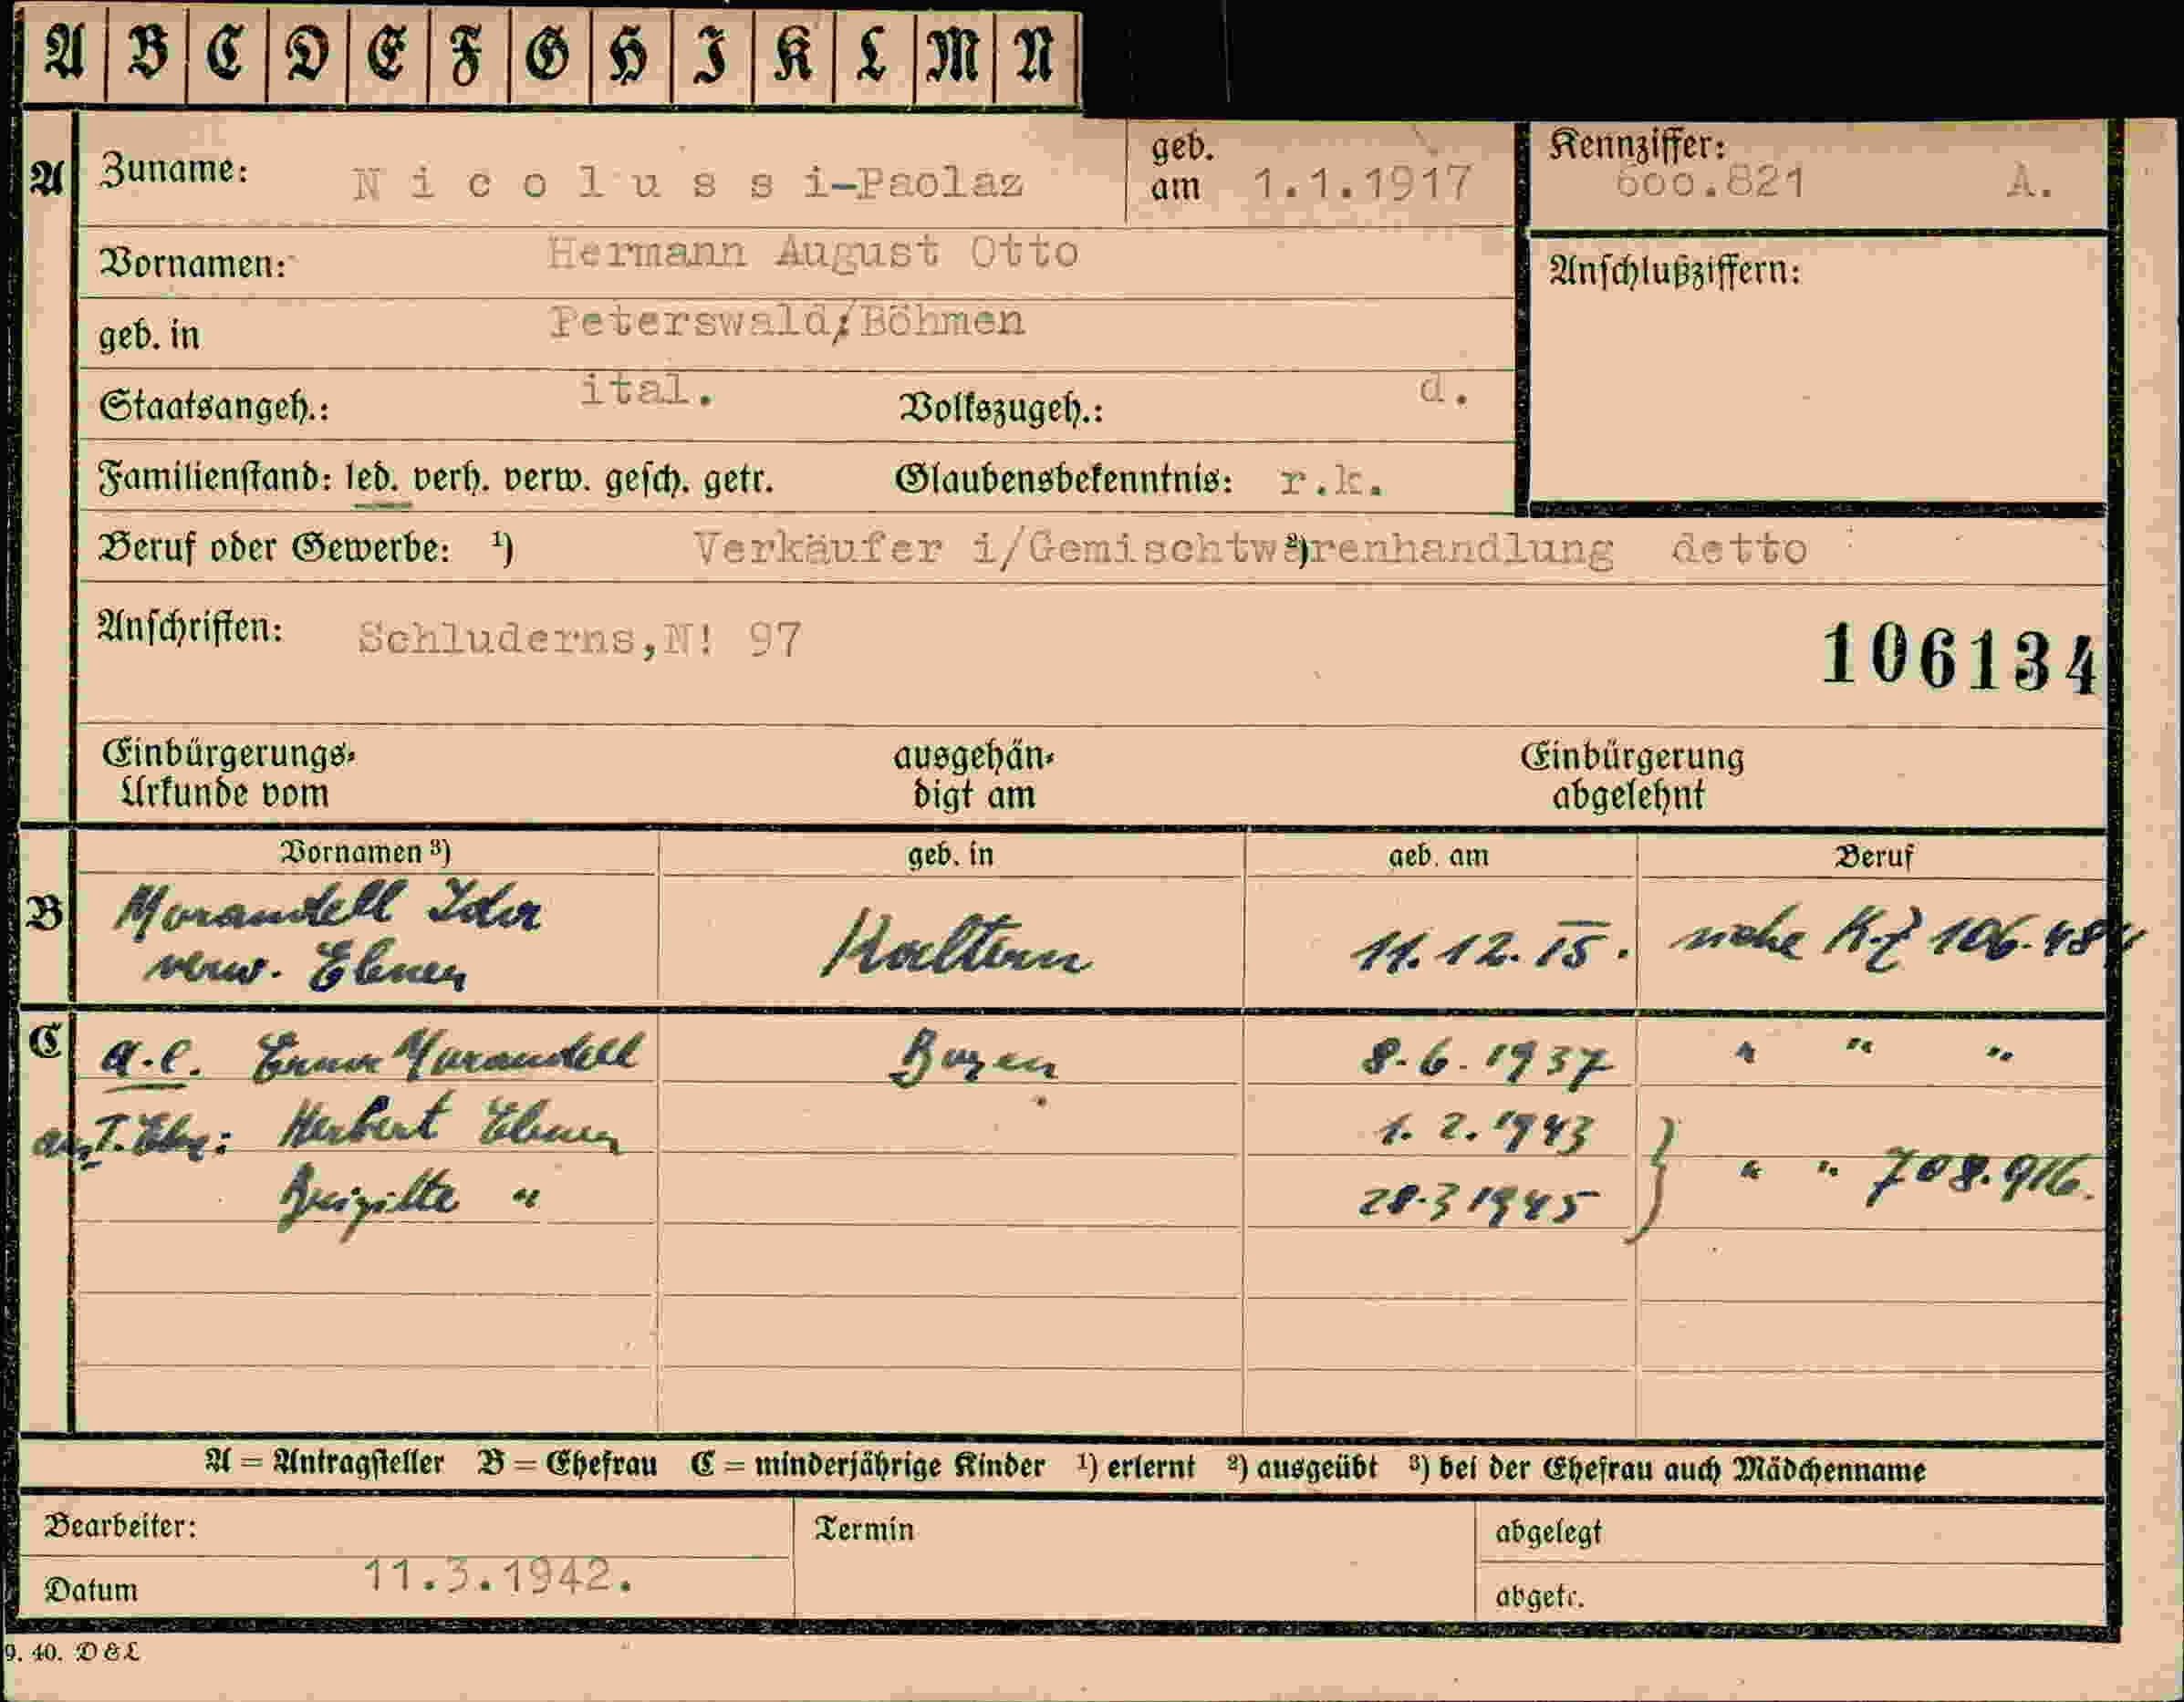 A B C D E F G H I K L M N
A Zuname: Nicolussi-Paolaz geb. am 1.1.1917 Kennziffer: 600.821 A.
Vornamen: Hermann August Otto Anschlußziffern:
geb. in Peterswald/Böhmen
Staatsangeh.: ital. Volkszugeh.: d.
Familienstand: led. verh. verw. gesch. getr. Glaubensbekenntnis: r.k.
Beruf oder Gewerbe: ¹) Verkäufer i/Gemischtwarenhandlung ²) detto
Anschriften: Schluderns,N! 97
106134
Einbürgerungs- ausgehän- Einbürgerung
Urkunde vom digt am abgelehnt
Vornamen ³) geb. in geb. am Beruf
B Morandell Ida
verw. Ebner Kaltern 11.12.15. siehe K.Z 106.484
C a.e. Morandell Bozen 8.6.1937 " " "
Herbert Ebner 1.2.1943
Brigitte " 28.3 1945 } " " 708.916.
A = Antragsteller B = Ehefrau C = minderjährige Kinder ¹) erlernt ²) ausgeübt ³) bei der Ehefrau auch Mädchenname
Bearbeiter: Termin abgelegt
Datum 11.3.1942. abgetr.
9. 40. D&L